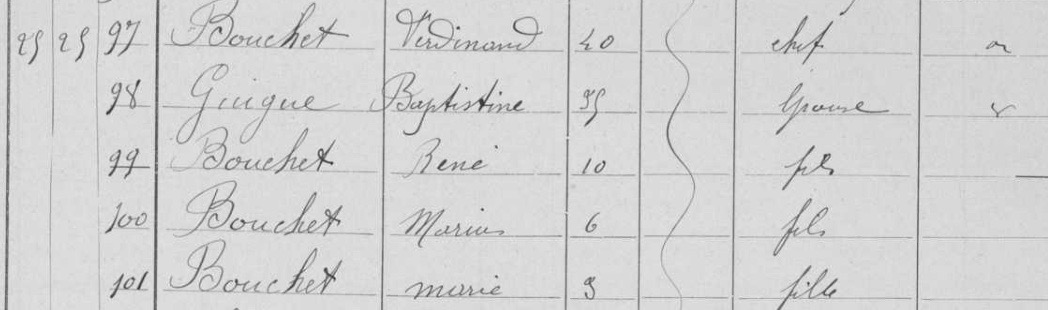 25 25 97 Bouchet Ferdinand 40 chef
98 Guigue Baptistine 35 épouse
99 Bouchet René 10 fils
100 Bouchet Marius 6 fils
101 Bouchet marie 3 fille